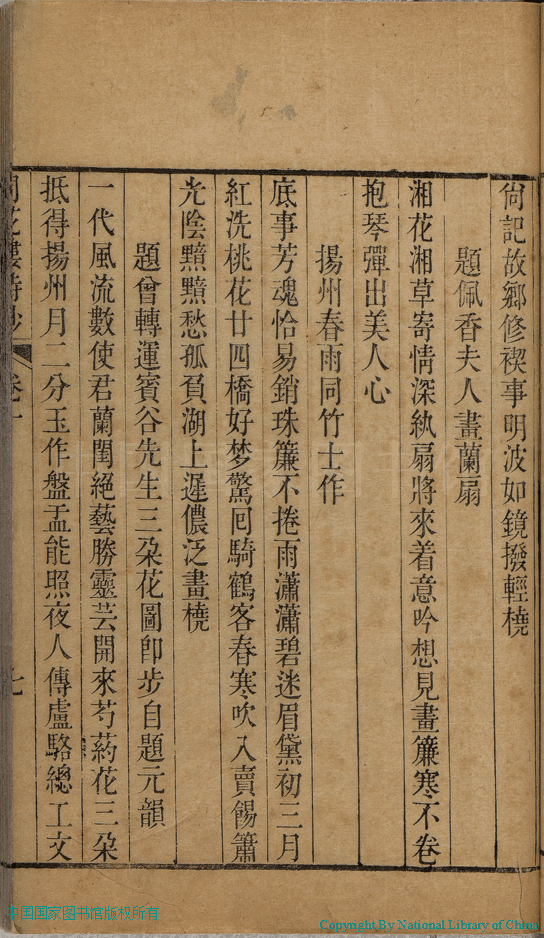 尙記故鄉修禊事明波如鏡撥輕橈
題佩香夫人畫蘭扇
湘花湘草寄情深紈扇將來着意吟想見畫簾寒不卷
抱琴彈出美人心
揚州春雨同竹士作
底事芳魂恰易銷珠簾不捲雨瀟瀟碧迷眉黛初三月
紅洗桃花廿四橋好梦驚回騎鶴客春寒吹入賣餳簫
光陰黯黯愁孤負湖上遲儂泛畫橈
題曾轉運賓谷先生三朵花圖卽步自題元韻
一代風流數使君蘭閨絕藝勝靈芸開來芍葯花三朵
抵得揚州月二分玉作盤盂能照夜人傳盧駱總工文
花樓詩鈔
卷一
七
中国国家图书馆版权所有
Copyright By National Library of China